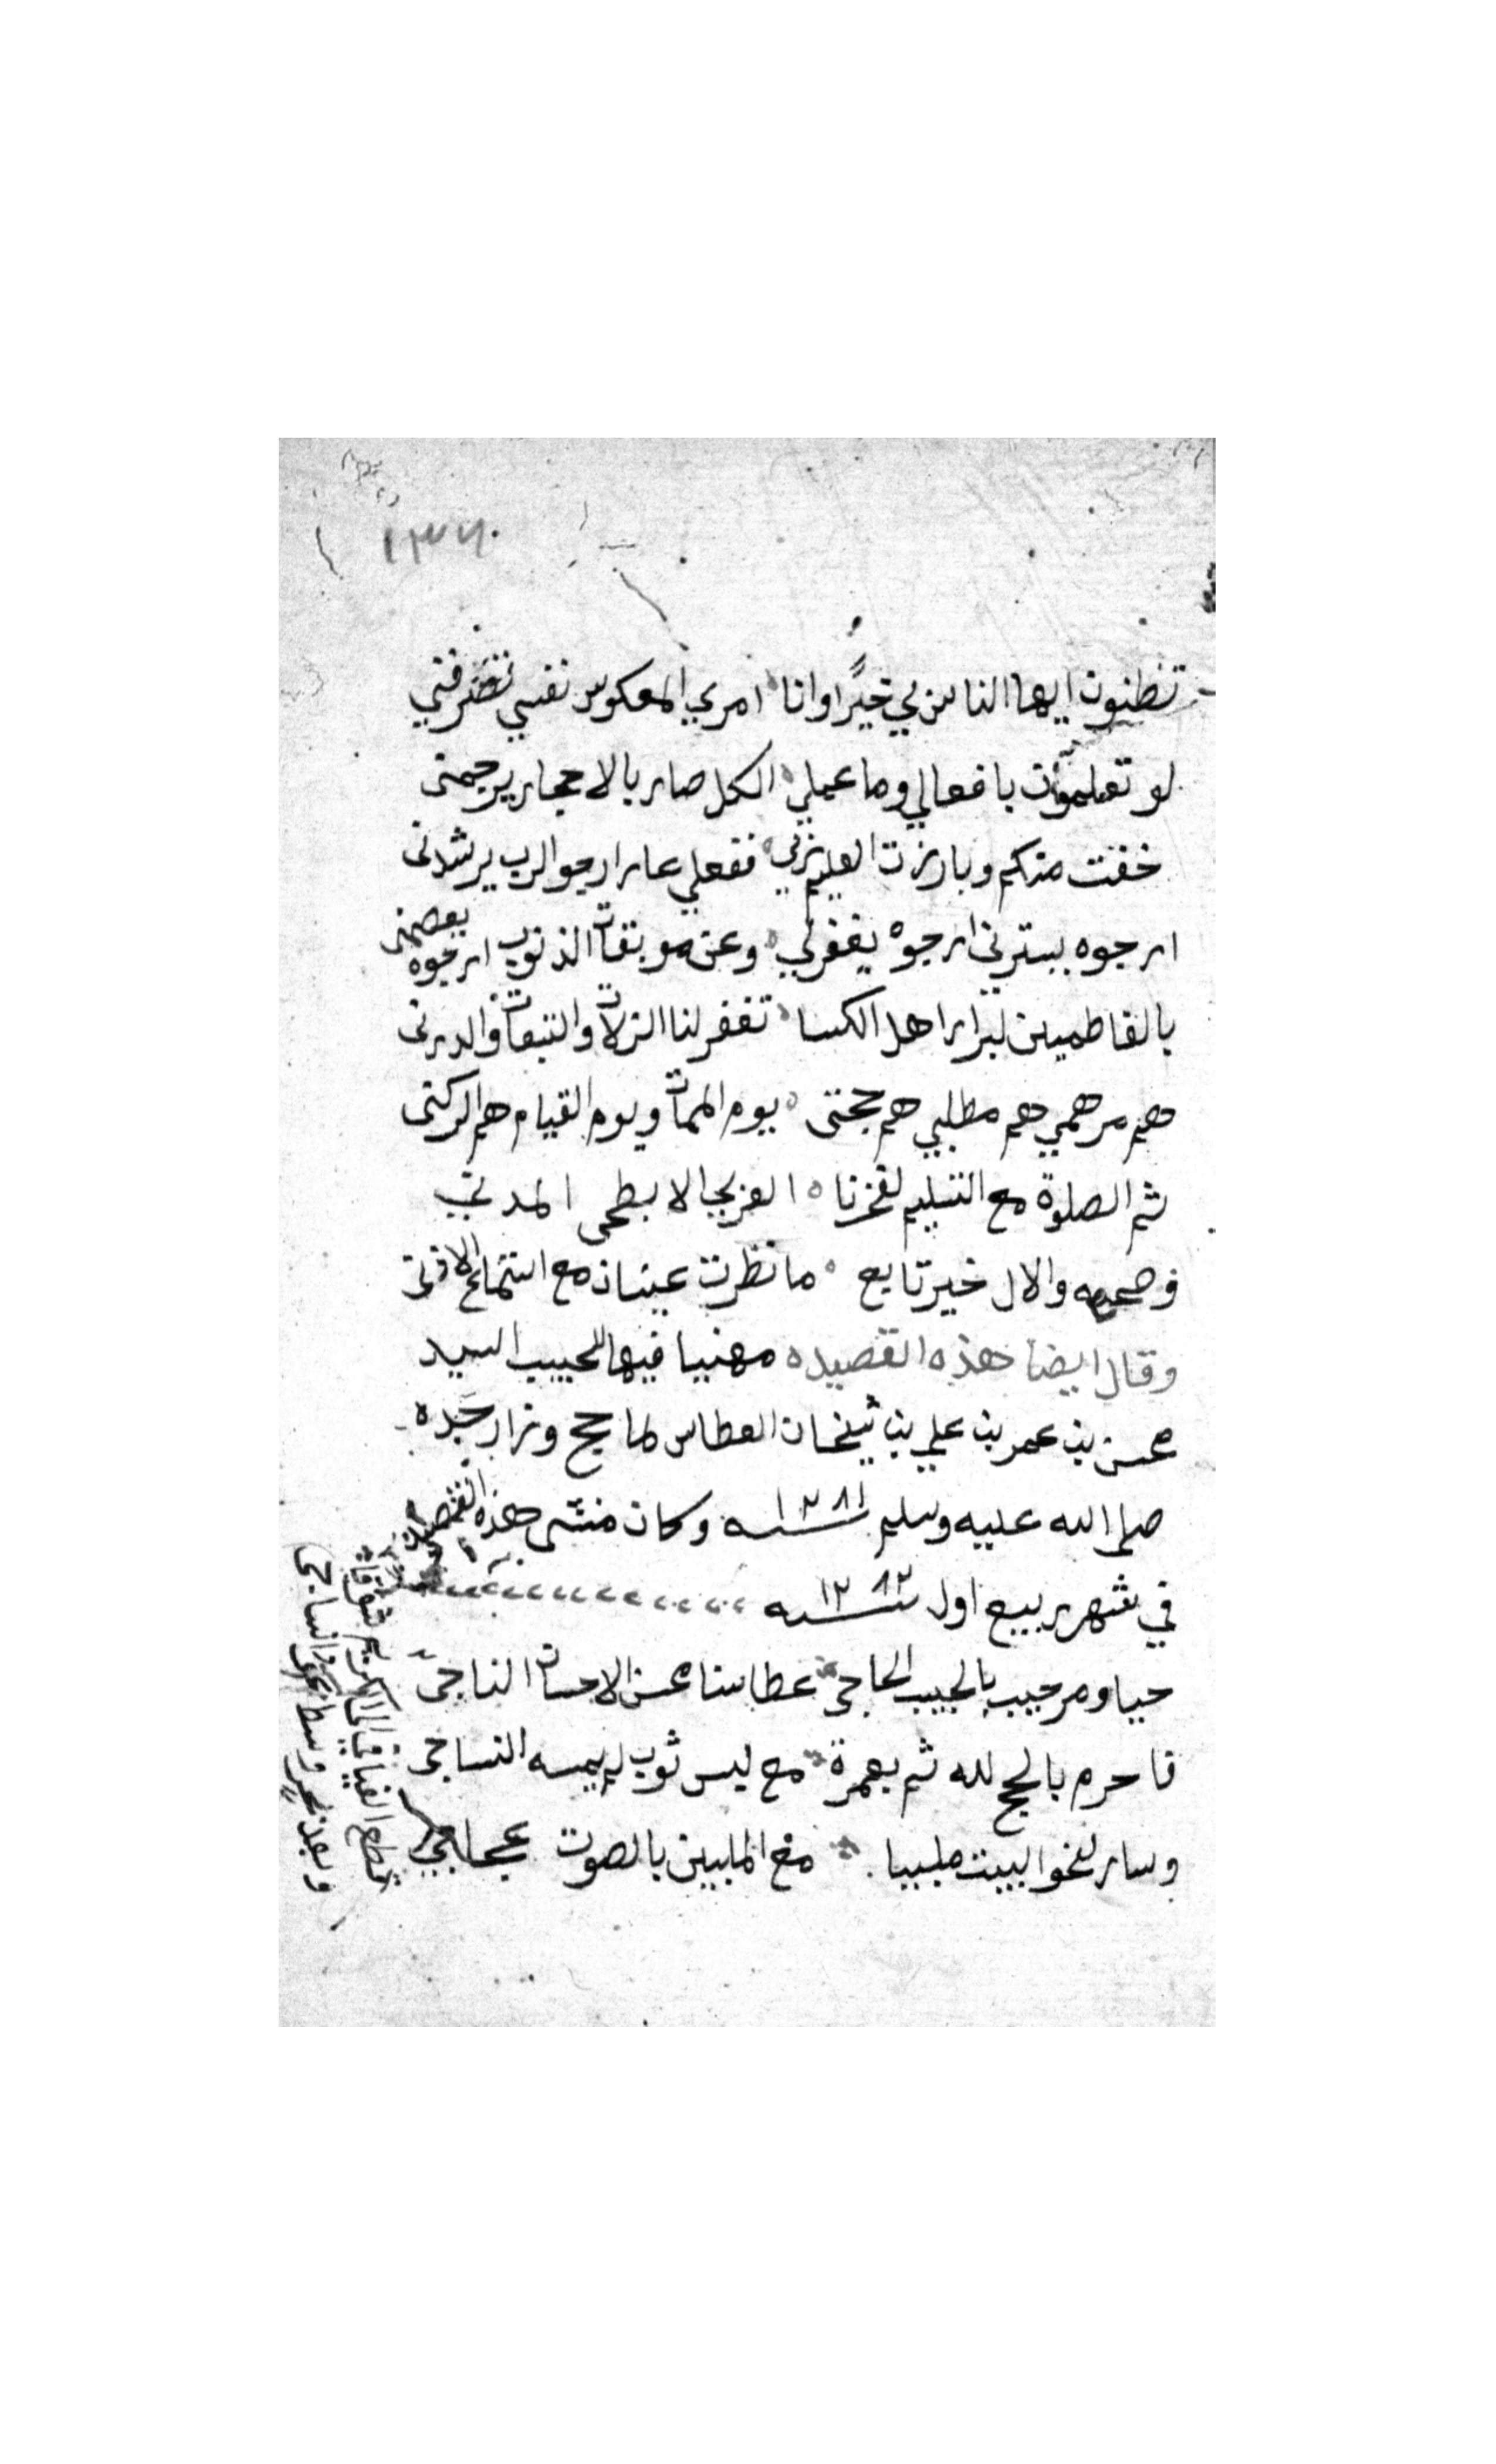 ١٣٧٠
تظنون ايها الناس بي خيرًا وانا امري المعكوس نفسي تصرفني
لو تعلمون بافعالي وما عملي الكل صار بالاحجار يرجمني
خفت منكم وبارزت العليم ففعلي عار ارجو الرب يرشدني
ارجوه يسترني ارجوه يغفرلي وعن موبقات الذنوب ارجوه يعصمني
بالفاطميين لبرار اهل الكسا تغفر لنا الزلات والتبعات والدرني
هم مرهمي هم مطلبي هم حجتي يوم الممات ويوم القيام هم الركني
ثم الصلوة مع التسليم لفخرنا العربي الابطحي المدني
وصحبه والال خير تابع ما نظرت عينان مع استماع الاذني
وقال ايضا هذه القصيده مهنيا فيها للحبيب السيد
محسن بن عمر بن علي بن شيخان العطاس لما حج وزار جده
صلى الله عليه وسلم ١٢٨١ سنه وكان منشى هذه القصيده
في شهر ربيع اول سنه ١٢٨٢
حيا ومرحيب بالحبيب الحاجي عطاسنا محسن الاحسان الناجي
فاحرم بالحج لله ثم بعمرة مع ليس ثوب لم يمسه النساجي
وسار لنحو البيت ملبيا مع الملبين بالصوت عجاجي